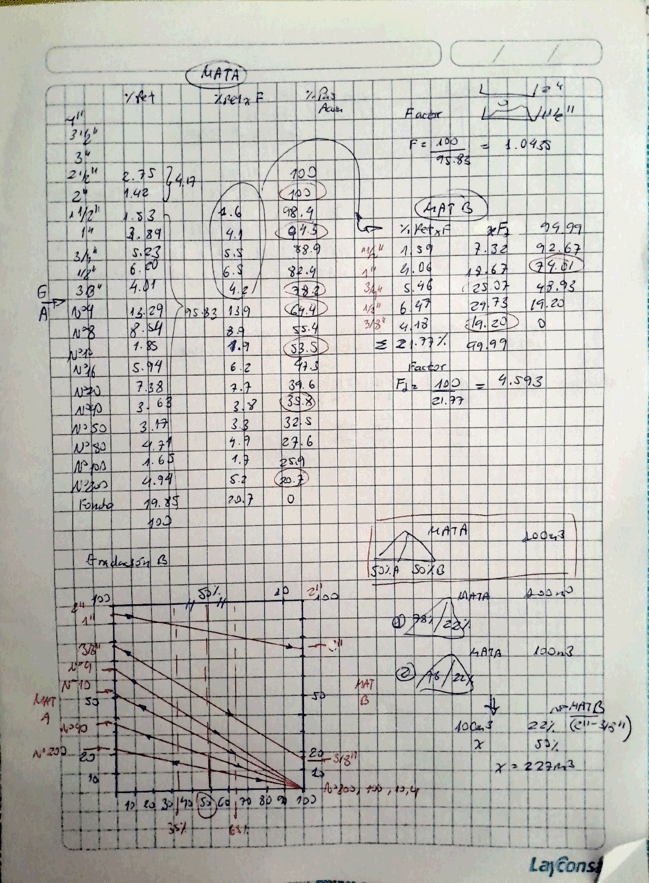 MATA
% Ret %Ret x F % Pas Acum
3 1/2"
3"
2 1/2" 2.75 100
2" 1.42 4.17 100
1 1/2" 1.53 1.6 98.4
1" 3.89 4.1 94.3
3/4" 5.23 5.5 88.9
1/2" 6.20 6.5 82.4
3/8" 4.01 4.2 78.2
G
A
Nº4 13.29 95.83 13.9 64.4
Nº8 8.54 8.9 55.4
1.85 1.9 53.5
Nº16 5.94 6.2 47.3
Nº20 7.38 7.7 39.6
Nº40 3.63 3.8 35.8
Nº50 3.17 3.3 32.5
Nº80 4.71 4.9 27.6
Nº100 1.65 1.7 25.9
Nº200 4.94 5.2 20.7
Fondo 19.85 20.7 0
100
Factor
F = 100 / 95.83 = 1.0435
MAT B
% Ret x F xF2 99.99
1 1/2" 1.59 7.32 92.67
1" 4.06 18.67 74.01
3/4" 5.46 25.07 48.93
1/2" 6.47 29.73 19.20
3/8" 4.18 19.20 0
Σ 21.77% 99.99
Factor
F2 = 100 / 21.77 = 4.593
MATA 100m3
50%A 50%B
Gradación B
MATA 100m3
① 78% 22%
MATA 100m3
② 78 22%
MAT B
100m3 22% (2"-3/8")
x 50%
x = 227m3
100 50% 20 2" 100
2"
1"
3/8"
Nº4
Nº10
50
MAT A
Nº40
Nº200
20
10
1"
MAT B
50
20
3/8"
10
Nº200, 100, 10, 4
10 20 30 40 50 60 70 80 90 100
35% 65%
LayConsa